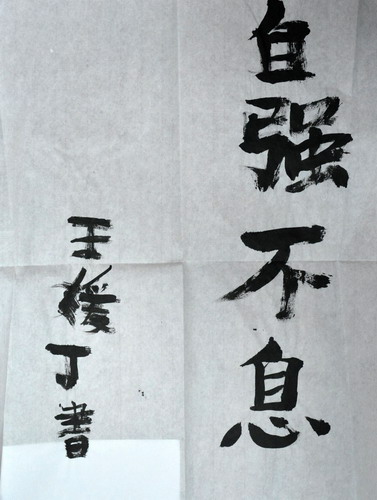 自强不息
王援丁書